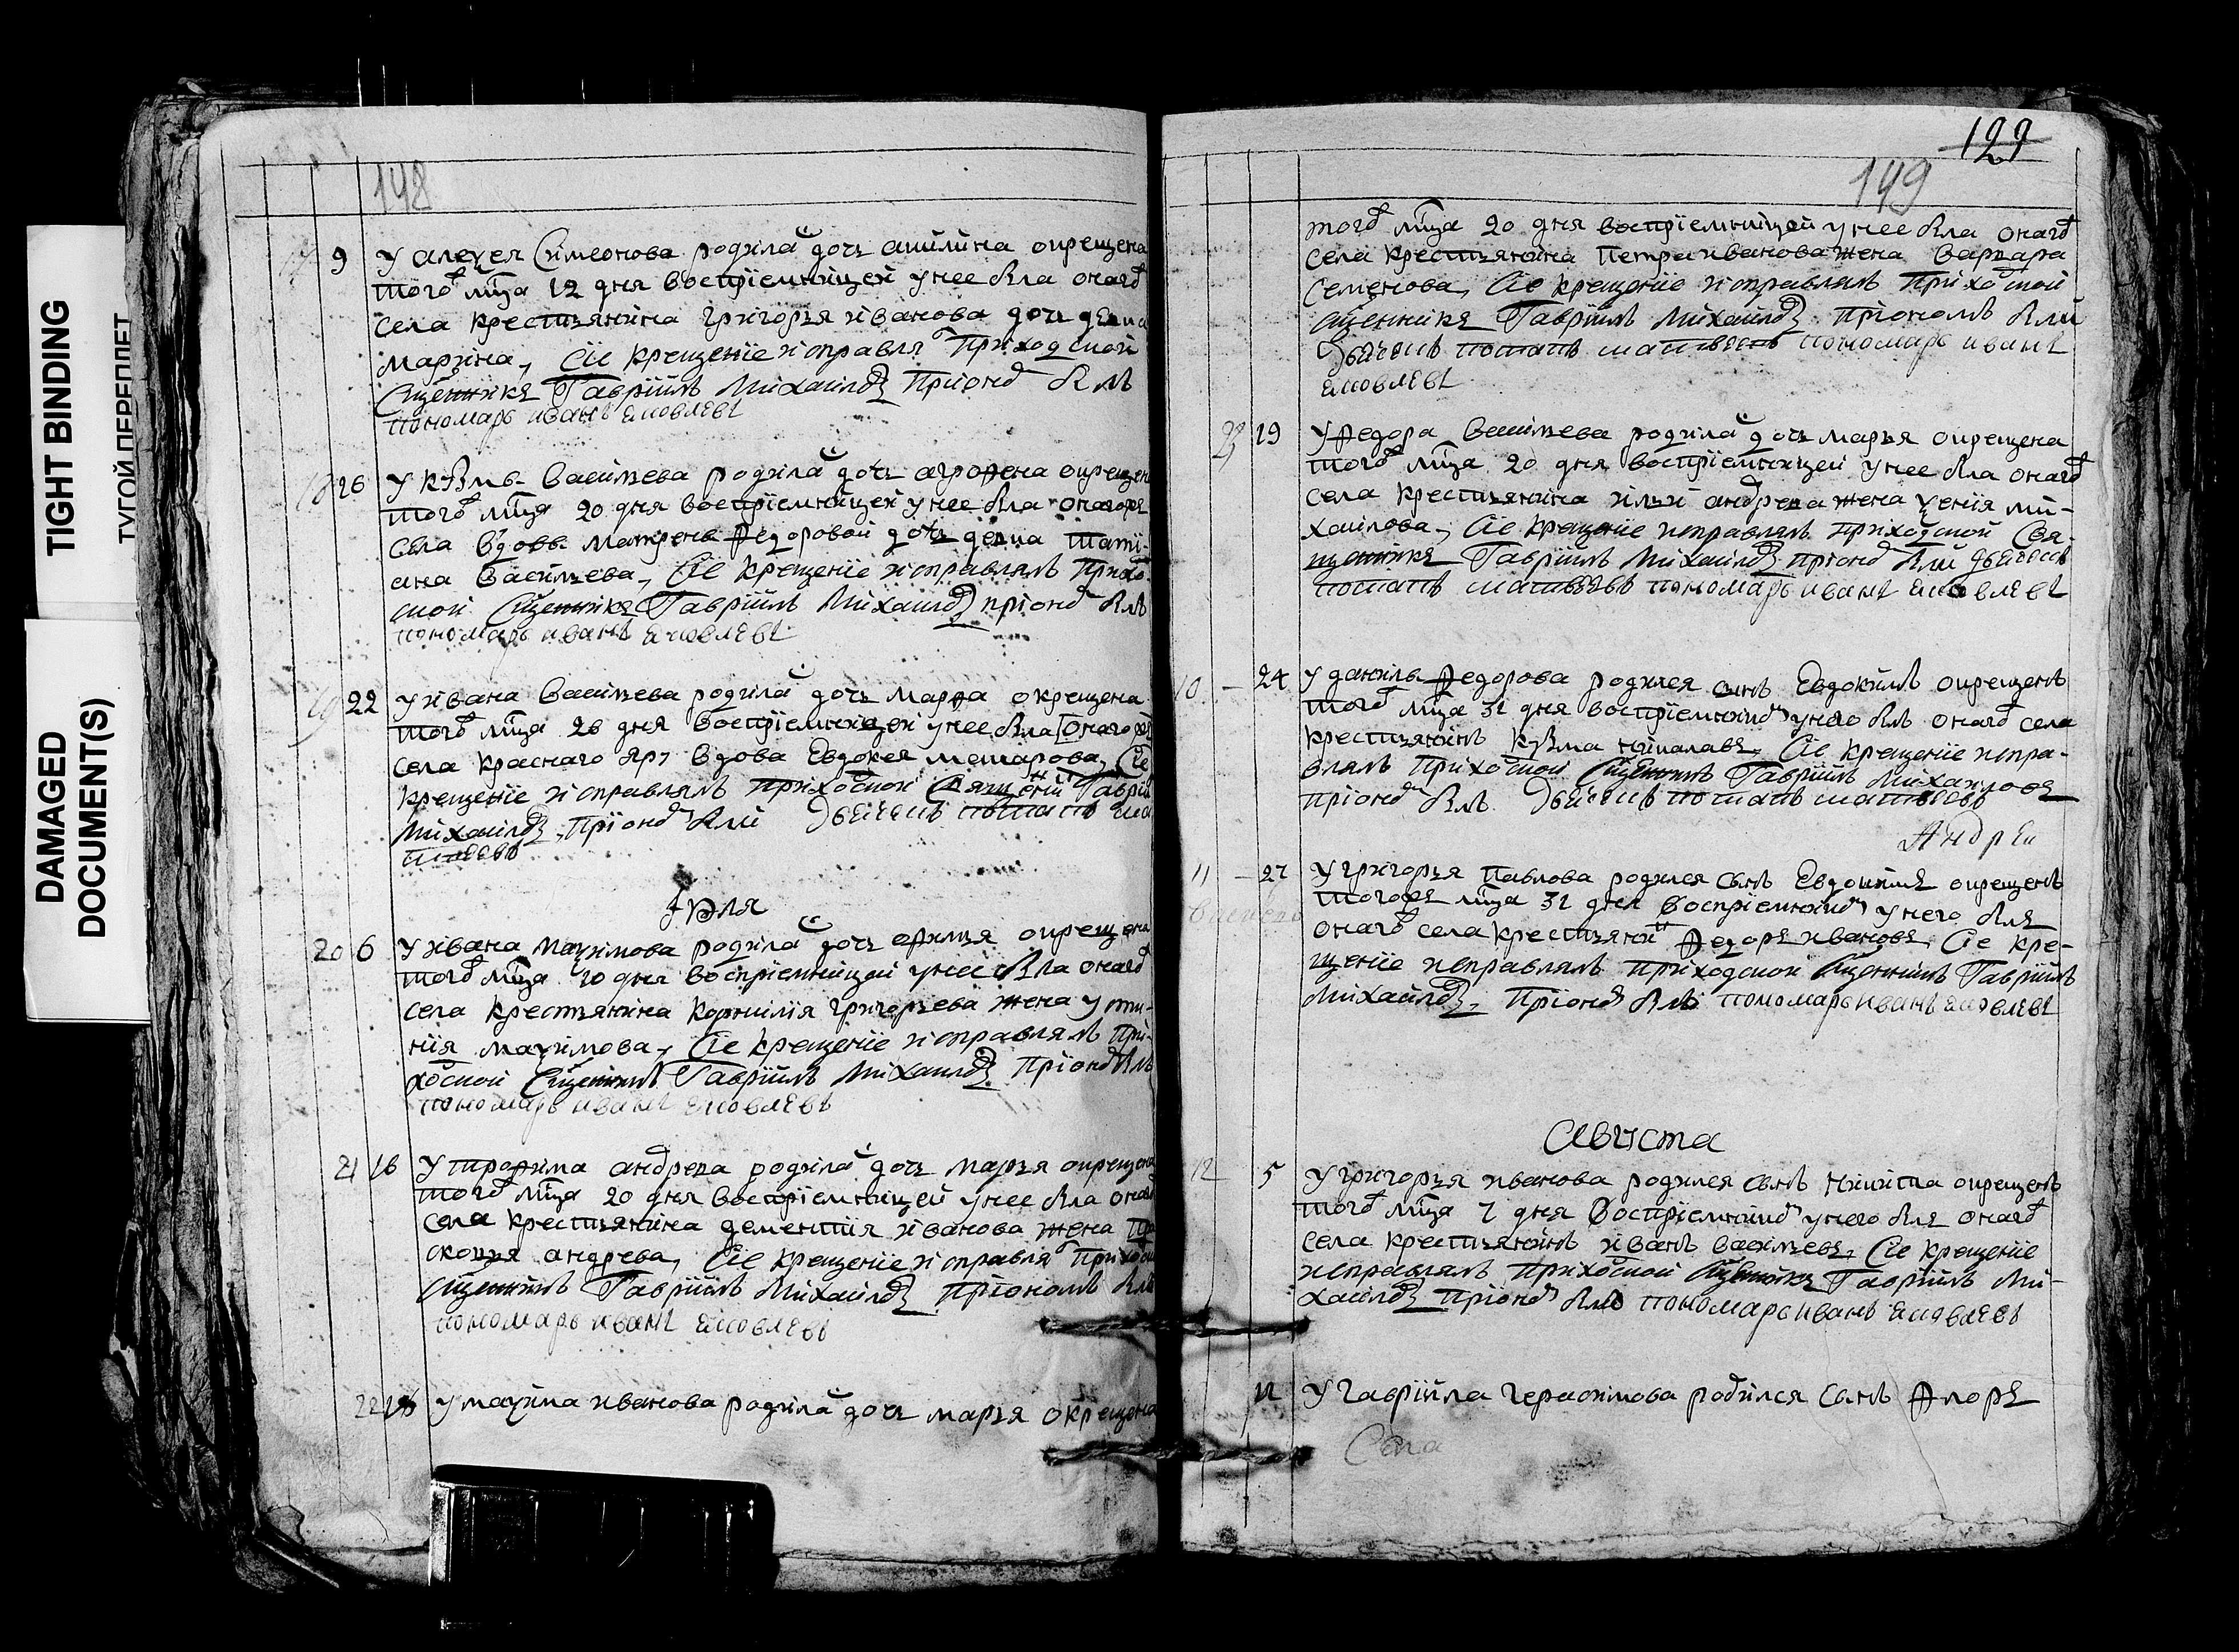 TIGHT BINDING
ТУГОЙ ПЕРЕПЛЕТ
DAMAGED
DOCUMENT(S)
148
9 У алеѯея Симеонова родилас дочь акилина окрещена
того мца 12 дня восприемницей у нее была онаго
села крестьянина григорья иванова дочь девка
марина, Сие крещение исправлял приходской
Сщенникъ Гавриилъ Михаилов при оном былъ
пономарь иванъ яковлевъ
18 16 У кузмы Васильева родилас дочь агрофена окрещен
того мца 20 дня восприемницей у нее была онагожъ
села вдовы матрены Федоровой дочь девка Тати-
ана Васильева, Сие крещение исправлялъ прихо-
ской Сщенникъ Гавриилъ Михаилов при оном былъ
пономарь иванъ яковлевъ
19 22 У ивана Васильева родилас дочь марфа окрещена
того мца 26 дня восприемницей у нее была онагожъ
села краснаго яру вдова Евдокея макарова, Сие
крещение исправлялъ приходской Священник Гаврил
Михаилов, при оном были дьячекъ потапъ ма
твеевъ
Июля
20 6 У ивана Маѯимова родилас дочь офимья окрещена
того мца 10 дня восприемницей у нее была онаго
села крестьянина Корнилия григорьева жена усти-
ния маѯимова, Сие крещение исправлялъ при-
ходской Сщенникъ Гавриилъ Михаилов при оном былъ
пономарь иванъ яковлевъ
21 16 У трофима андреева родилас дочь марья окрещена
того мца 20 дня восприемницей у нее была онаго
села крестьянина дементия иванова жена пра
сковья андреева, Сие крещение исправлял приходск
Сщенникъ Гавриилъ Михаилов при ономъ былъ
пономарь иванъ яковлевъ
22 У маѯима иванова родилас дочь марья окрещена
129
149
того мца 20 дня восприемницей у нее была онаго
села крестьянина Петра иванова жена варвара
Семенова, Сие крещение исправлялъ приходской
Сщенникъ Гавриилъ Михаилов при ономъ были
дьячекъ потапъ матвеевъ пономарь иванъ
яковлевъ
23 19 У федора Васильева родилас дочь марья окрещена
того мца 20 дня восприемницей у нее была онаго
села крестьянина ильи андреева жена ѯения ми-
хаилова, Сие крещение исправлялъ приходской Свя-
щенникъ Гавриилъ Михаилов при оном были дьячекъ
потапъ матвеевъ пономарь иванъ яковлевъ
10 24 У данилы Федорова родился сынъ Евдокимъ окрещенъ
того мца 31 дня восприемником у него былъ онаго села
крестьянинъ Кузма николаевъ, Сие крещение испра-
влялъ приходской Сщенникъ Гавриилъ Михаиловъ
при оном былъ дьячекъ потапъ матвеевъ
Андреи
11 27 У григорья Павлова родился сынъ Евдокимъ окрещенъ
тогожъ мца 31 дня восприемником у него былъ
онаго села крестьянин Федоръ ивановъ, Сие кре-
щение исправлялъ приходской Сщенникъ Гавриилъ
Михаилов, при оном былъ пономарь иванъ яковлевъ
Августа
12 5 У григорья иванова родился сынъ никита окрещенъ
того мца 7 дня восприемником у него былъ онаго
села крестьянинъ иванъ васильевъ, Сие крещение
исправлялъ приходской Сщенникъ Гавриилъ Ми-
хаилов при оном былъ пономарь иванъ яковлевъ
12 У гавриила герасимова родился сынъ Флоръ
Села